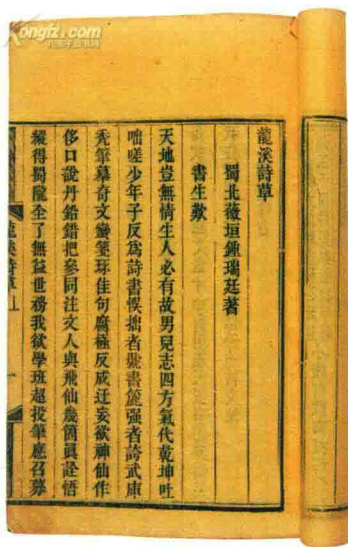 Kongfz.com
龍溪詩草
蜀北薇垣鍾瑞廷著
書生歎
天地豈無情生人必有故男兒志四方氣代乾坤吐
咄嗟少年子反為詩書悞拙者號書簏强者誇武庫
禿筆摹奇文蠻箋琢佳句腐極反成迂妄欲神仙作
侈口說丹鉛錯把參同注文人與飛仙幾箇眞詮悟
縱得蜀隴全了無益世務我欲學班超投筆應召募
龍溪詩草